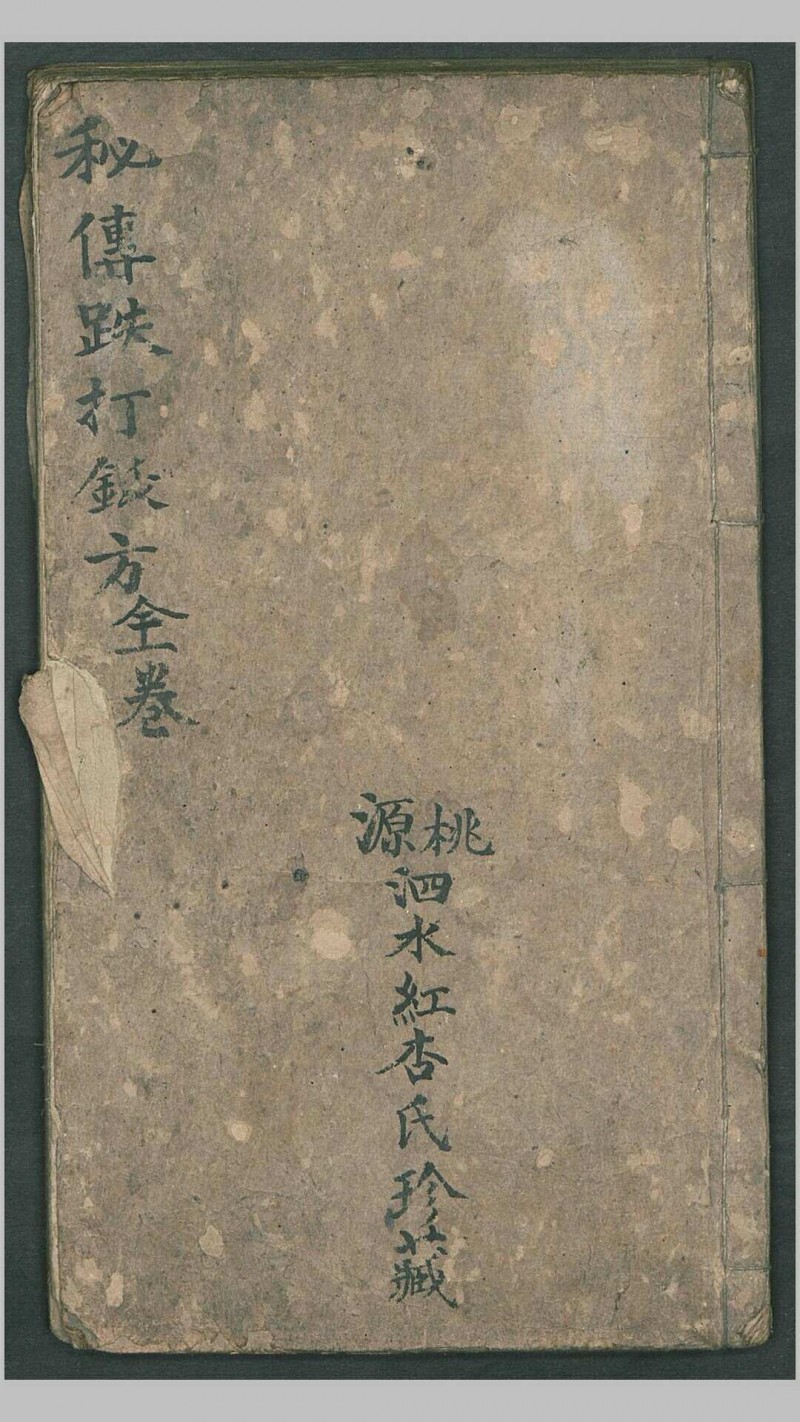 秘傳跌打方全卷
桃源
泗水紅杏氏珍藏